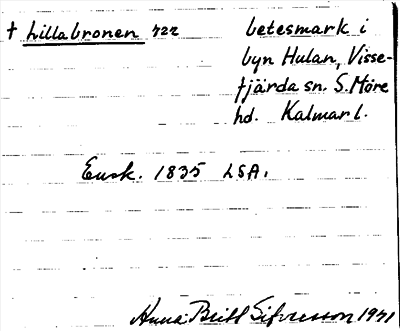 † Lillabronen 722 betesmark i
byn Hulan, Visse-
fjärda sn. S. Möre
hd. Kalmar l.
Ensk. 1835 LSA.
Anna-Britt Sifversson 1941